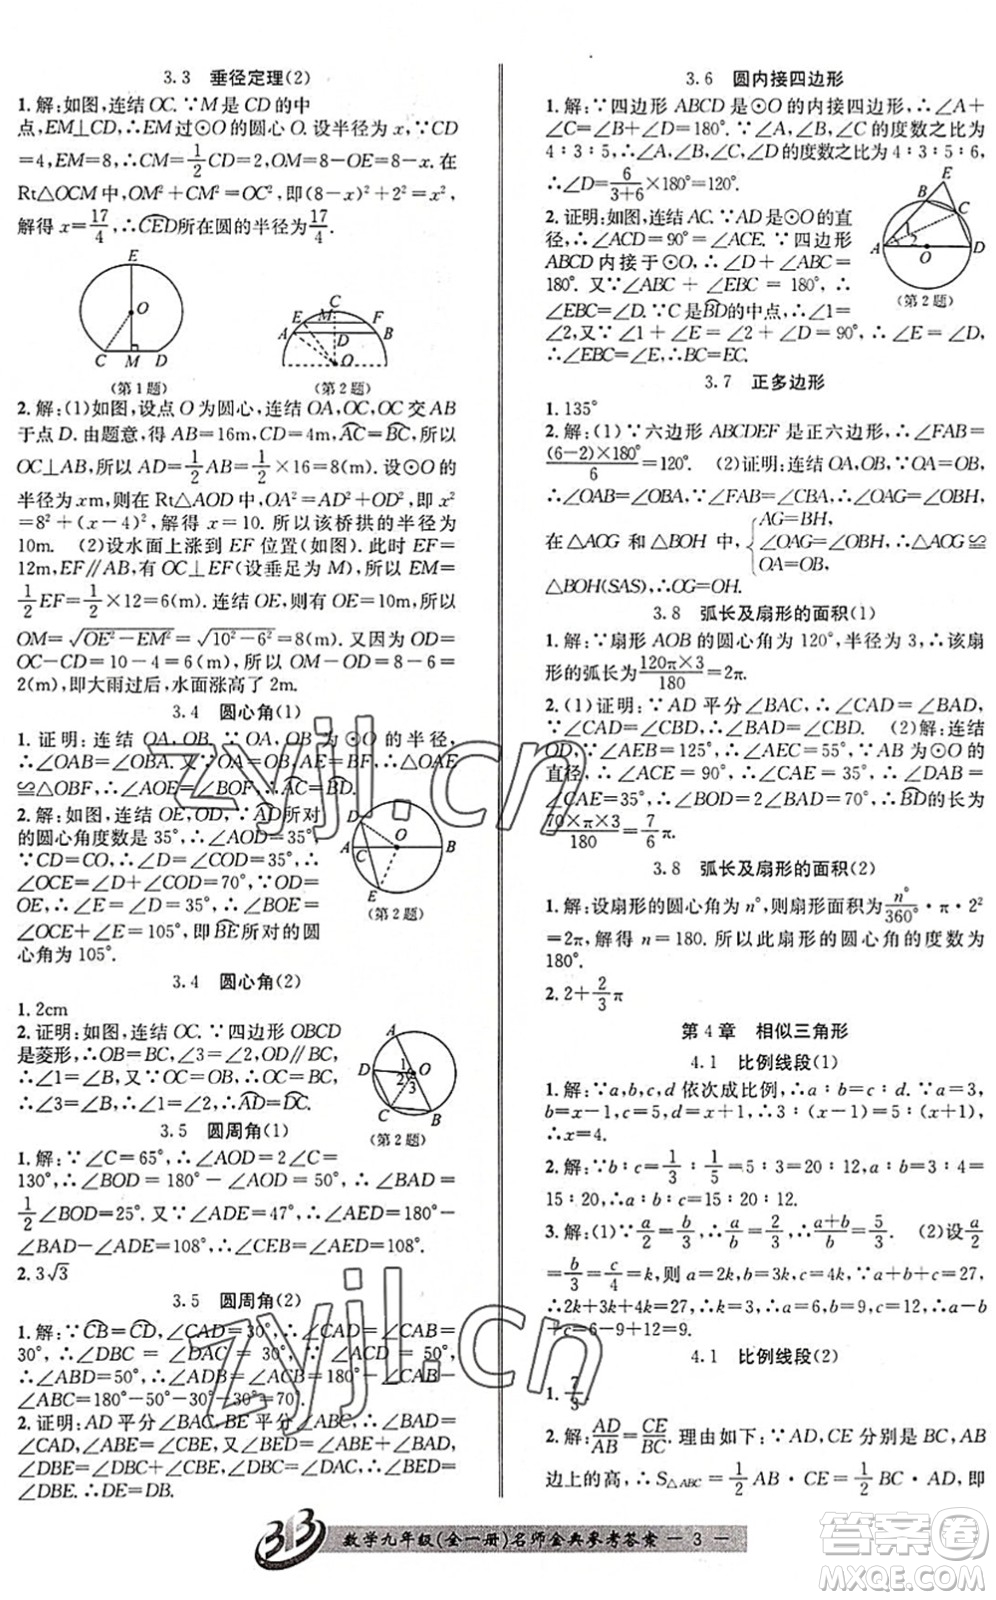 3.3 垂径定理(2)
1.解:如图,连结OC.∵M是CD的中
点,EM⊥CD,∴EM过⊙O的圆心O.设半径为x,∵CD
=4,EM=8,∴CM=1/2CD=2,OM=8-OE=8-x.在
Rt△OCM中,OM²+CM²=OC²,即(8-x)²+2²=x²,
解得x=17/4,∴CED所在圆的半径为17/4.
E
O
C M D
(第1题)
C
E M F
A D B
O
(第2题)
2.解:(1)如图,设点O为圆心,连结OA,OC,OC交AB
于点D.由题意,得AB=16m,CD=4m,AC=BC,所以
OC⊥AB,所以AD=1/2AB=1/2×16=8(m).设⊙O的
半径为xm,则在Rt△AOD中,OA²=AD²+OD²,即x²
=8²+(x-4)²,解得x=10.所以该桥拱的半径为
10m. (2)设水面上涨到EF位置(如图).此时EF=
12m,EF∥AB,有OC⊥EF(设垂足为M),所以EM=
1/2EF=1/2×12=6(m).连结OE,则有OE=10m.所以
OM=√OE²-EM²=√10²-6²=8(m).又因为OD=
OC-CD=10-4=6(m),所以OM-OD=8-6=2
(m),即大雨过后,水面涨高了2m.
3.4 圆心角(1)
1.证明:连结OA,OB.∵OA,OB为⊙O的半径,
∴∠OAB=∠OBA.又∵OA=OB,AE=BF,∴△OAE
≌△OBF,∴∠AOE=∠BOF,∴AC=BD.
2.解:如图,连结OE,OD,∵AD所对
的圆心角度数是35°,∴∠AOD=35°.
∵CD=CO,∴∠D=∠COD=35°,
∴∠OCE=∠D+∠COD=70°,∵OD=
OE,∴∠E=∠D=35°,∴∠BOE=
∠OCE+∠E=105°,即BE所对的圆
心角为105°.
D
A C O B
E
(第2题)
3.4 圆心角(2)
1.2cm
2.证明:如图,连结OC.∵四边形OBCD
是菱形,∴OB=BC,∠3=∠2,OD∥BC,
∴∠1=∠B.又∵OC=OB=BC,∴∠B=
∠3,∴∠1=∠2,∴AD=DC.
A
D 1 O
2 3
C B
(第2题)
3.5 圆周角(1)
1.解:∵∠C=65°,∴∠AOD=2∠C=
130°,∴∠BOD=180°-∠AOD=50°,∴∠BAD=
1/2∠BOD=25°.又∵∠ADE=47°,∴∠AED=180°-
∠ADE-∠BAD=108°,∴∠CEB=∠AED=108°.
2.3√3
3.5 圆周角(2)
1.解:∵CB=CD,∠CAD=30°,∴∠CAD=∠CAB=
30°,∴∠DBC=∠DAC=30°,∵∠ACD=50°,
∴∠ABD=50°,∴∠ABC=∠ABD+∠DBC=50°+30°=80°,
∠ABC=180°-50°-30°-30°=70°.
2.证明:AD平分∠BAC,BE平分∠ABC,∴∠BAD=
∠CAD,∠ABE=∠CBE,∴∠BAD+∠ABE=
∠DBC+∠CBE,∠BED=∠DBE,∴BD=
∠DBE.∴DB=DE.
3.6 圆内接四边形
1.解:∵四边形ABCD是⊙O的内接四边形,∴∠A+
∠C=∠B+∠D=180°.∵∠A,∠B,∠C的度数之比为
4∶3∶5,∴∠A,∠B,∠C,∠D的度数之比为4∶3∶5∶6,
∴∠D=6/(3+6)×180°=120°.
2.证明:如图,连结AC.∵AD是⊙O的直
径,∴∠ACD=90°=∠ACE.∵四边形
ABCD内接于⊙O,∴∠D+∠ABC=
180°.又∵∠ABC+∠EBC=180°,∴
∠EBC=∠D.∵C是BD的中点,∴∠1=
∠2,又∵∠1+∠E=∠2+∠D=90°,∴∠E=∠D,
∴∠EBC=∠E,∴BC=EC.
E
B
C
1
2
A O D
(第2题)
3.7 正多边形
1.135°
2.解:(1)∵六边形ABCDEF是正六边形,∴∠FAB=
(6-2)×180°/6=120°. (2)证明:连结OA,OB,∵OA=OB,
∴∠OAB=∠OBA,∵∠FAB=∠CBA,∴∠OAG=∠OBH,
AG=BH,
在△AOG和△BOH中,{∠OAG=∠OBH,∴△AOG≌
OA=OB
△BOH(SAS),∴OG=OH.
3.8 弧长及扇形的面积(1)
1.解:∵扇形AOB的圆心角为120°,半径为3,∴该扇
形的弧长为120π×3/180=2π.
2.(1)证明:∵AD平分∠BAC,∴∠CAD=∠BAD,
∵∠CAD=∠CBD,∴∠BAD=∠CBD. (2)解:连结
OD,∵∠AEB=125°,∴∠AEC=55°,∵AB为⊙O的
直径,∴∠ACE=90°,∴∠CAE=35°,∴∠DAB=
∠CAE=35°,∴∠BOD=2∠BAD=70°,∴BD的长为
70×π×3/180=7/6π.
3.8 弧长及扇形的面积(2)
1.解:设扇形的圆心角为n°,则扇形面积为n°/360°·π·2²
=2π,解得n=180.所以此扇形的圆心角的度数为
180°.
2.2+2/3π
第4章 相似三角形
4.1 比例线段(1)
1.解:∵a,b,c,d依次成比例,∴a∶b=c∶d.∵a=3,
b=x-1,c=5,d=x+1,∴3∶(x-1)=5∶(x+1),
∴x=4.
2.解:∵a∶b=1/3∶1/5=5∶3,b∶c=3∶4=
15∶20,∴a∶b∶c=25∶15∶20.
3.解:(1)∵a/2=b/3,∴a/b=2/3,∴(a+b)/b=5/3. (2)设a/2=
b/3=c/4=k,则a=2k,b=3k,c=4k,∵a+b+c=27,
∴2k+3k+4k=27,∴k=3,∴a=6,b=9,c=12,∴a-b
+c=6-9+12=9.
4.1 比例线段(2)
1.7/3
2.解:AD/AB=CE/BC.理由如下:∵AD,CE分别是BC,AB
边上的高,∴S△ABC=1/2AB·CE=1/2BC·AD,即
数学九年级(全一册)名师金典参考答案 — 3 —
zyjl.cn
zyjl.cn
作业精灵
MXQE.COM